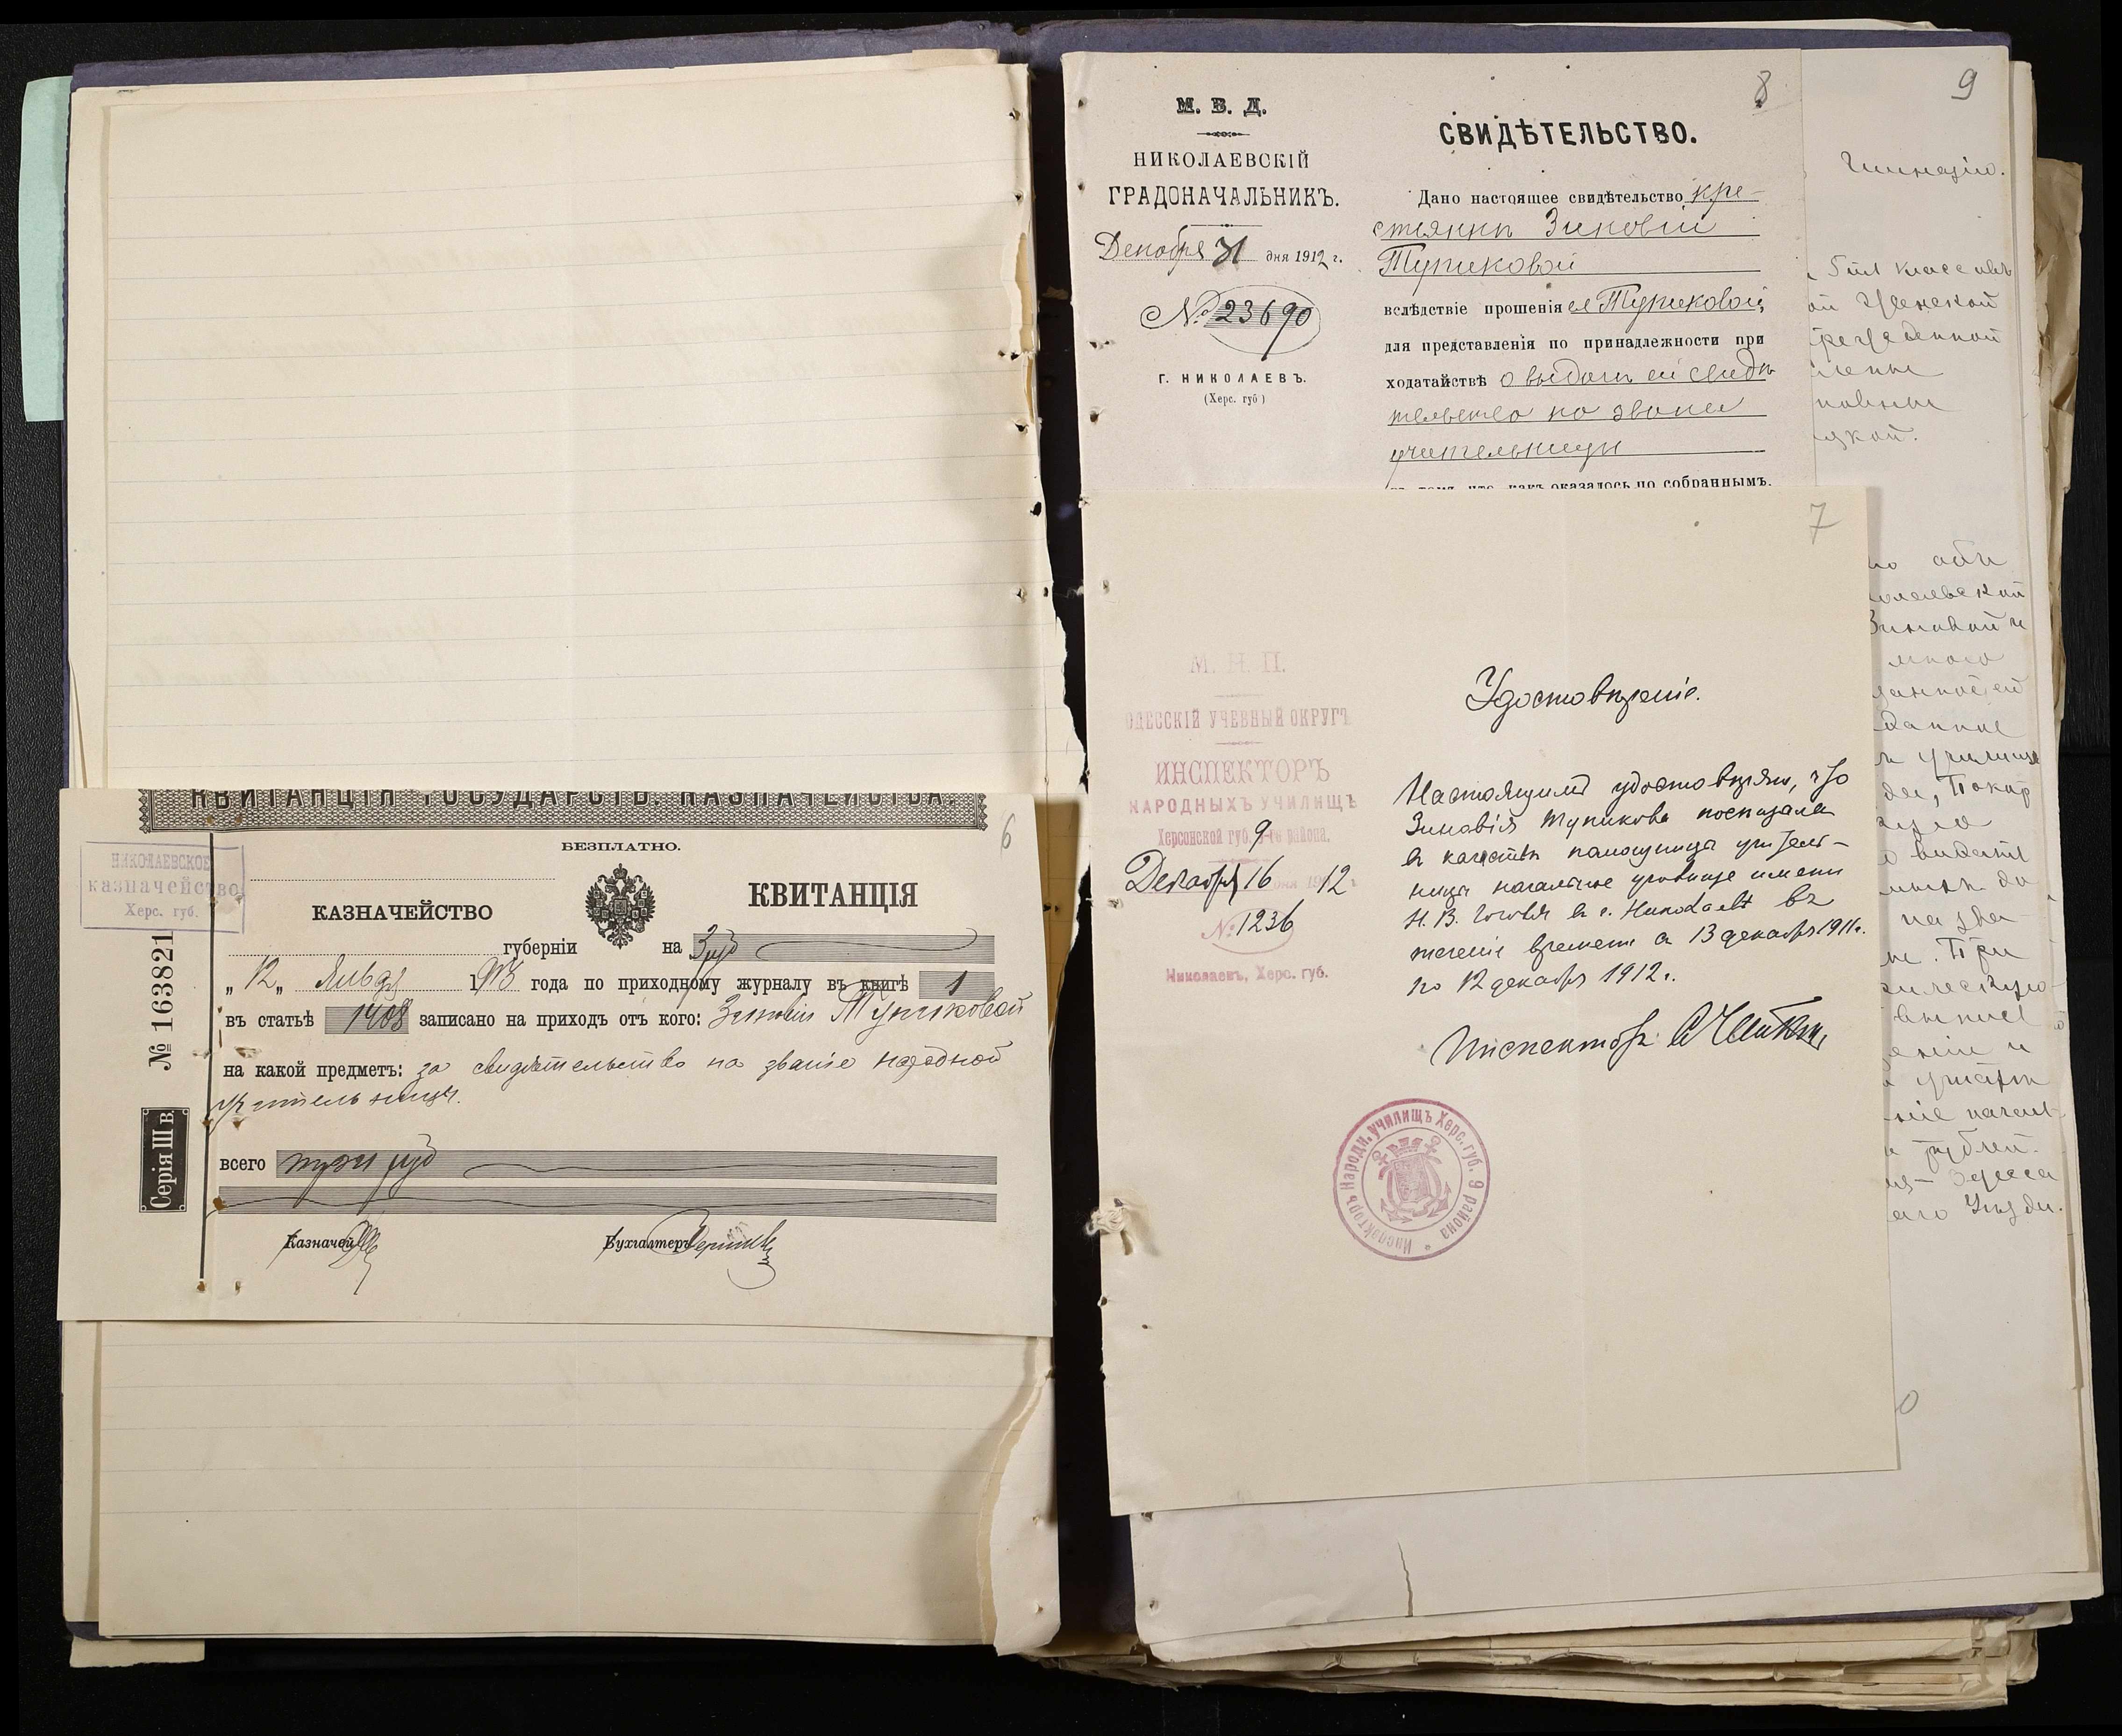 КВИТАНЦІЯ ГОСУДАРСТВ. КАЗНАЧЕЙСТВА.
6
БЕЗПЛАТНО.
НИКОЛАЕВСКОЕ
казначейство
Херс. губ.
КАЗНАЧЕЙСТВО
КВИТАНЦІЯ
губерніи
на 3 руб
„ 12 „ Января 1913 года по приходному журналу въ книгѣ 1
въ статьѣ 1408 записано на приходъ отъ кого: Зиновіи Тупиковой
на какой предметъ: за свидѣтельство на званіе народной
учительницы.
всего три руб
Казначей
Бухгалтеръ
№ 163821
Серія Ш в.
М. В. Д.
НИКОЛАЕВСКІЙ
ГРАДОНАЧАЛЬНИКЪ.
Декабря 31 дня 1912 г.
№ 23690
Г. НИКОЛАЕВЪ.
(Херс. губ)
8
СВИДѢТЕЛЬСТВО.
Дано настоящее свидѣтельство кре-
стянкѣ Зиновіи
Тупиковой
вслѣдствіе прошенія ея Тупиковой,
для представленія по принадлежности при
ходатайствѣ о выдачѣ ей свидѣ
тельства на званіе
учительницы
въ томъ, что, какъ оказалось по собраннымъ.
7
М. Н. П.
ОДЕССКІЙ УЧЕБНЫЙ ОКРУГЪ
ИНСПЕКТОРЪ
НАРОДНЫХЪ УЧИЛИЩЪ
Херсонской губ. 9-го района.
Декабря 16 дня 1912 г.
№ 1236
Николаевъ, Херс. губ.
Удостовѣреніе.
Настоящимъ удостовѣряю, что
Зиновія Тупикова посѣщала
въ качествѣ помощницы учитель-
ницы начальное училище имени
Н. В. Гоголя въ г. Николаевѣ въ
теченіе времени съ 13 декабря 1911 г.
по 12 декабря 1912 г.
Инспекторъ
Инспекторъ Народн. училищъ Херс. губ. 9 района
9
Гимназію.
классовъ
Женской
учрежденной
училище
выдать
на зва
При
рублей.
Одесса